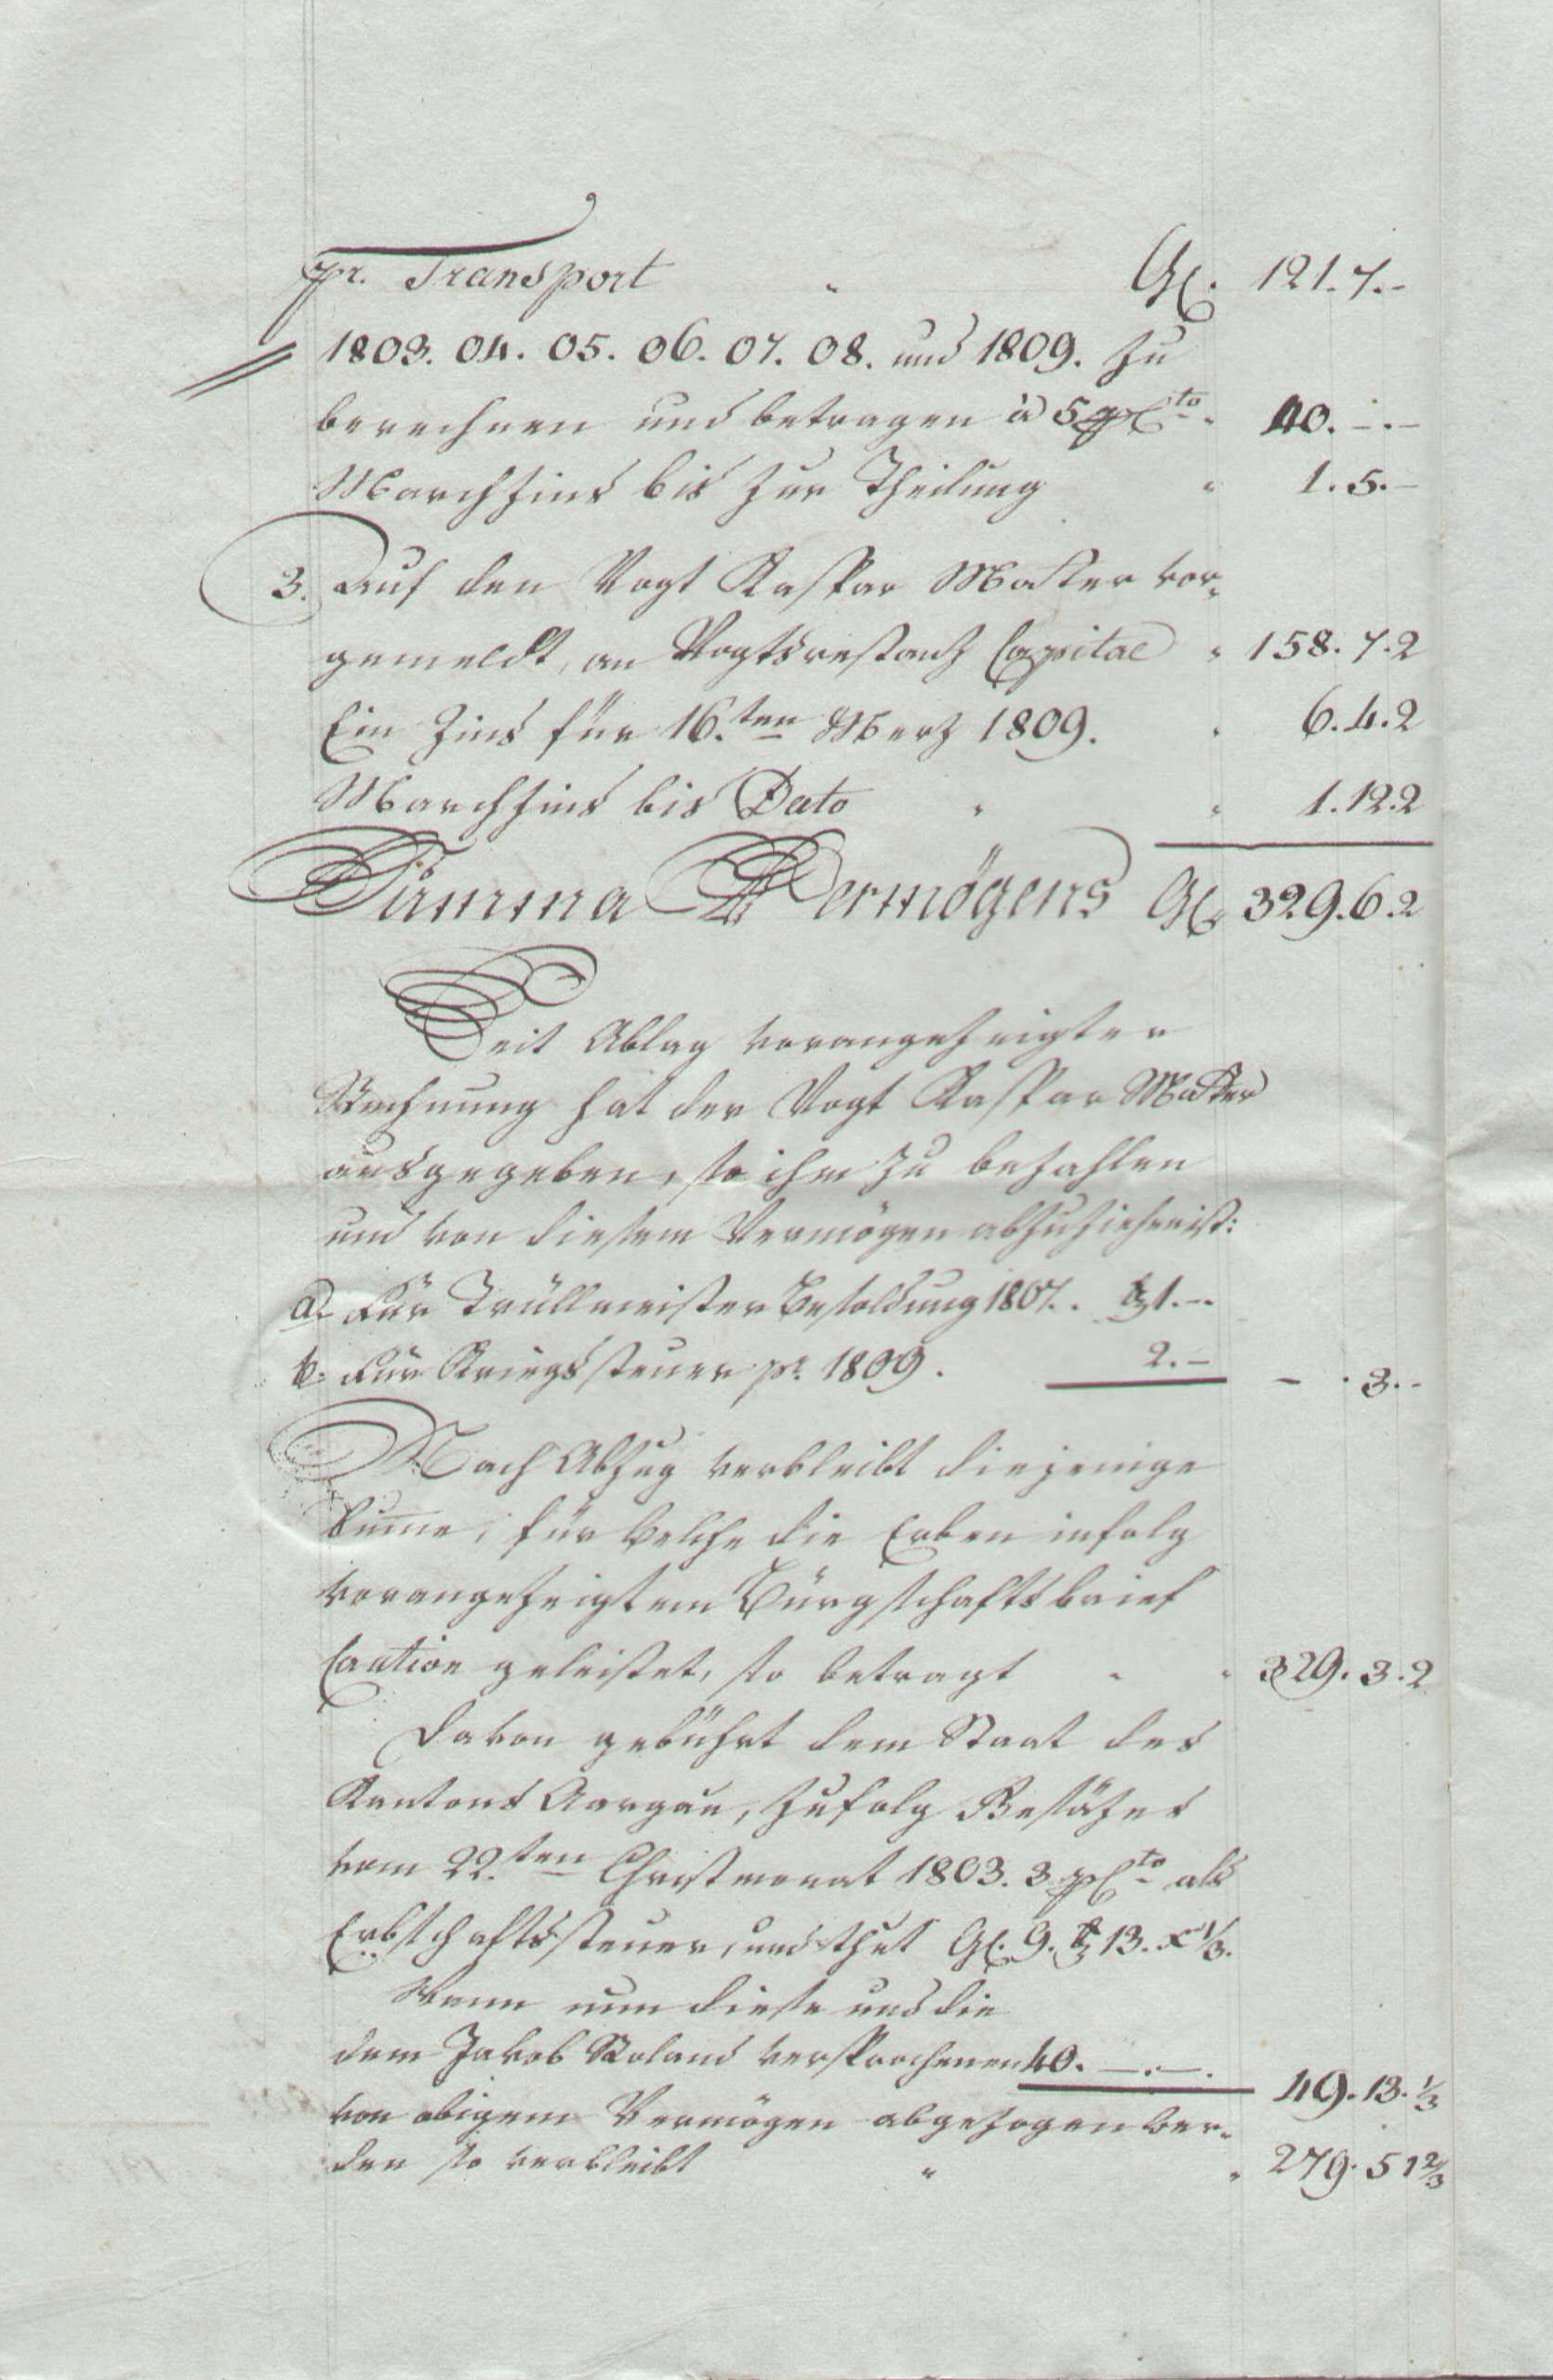 pr. Transport " Gl. 121.7.-
1803. 04. 05. 06. 07. 08. und 1809. zu
berechnen und betragen à 5 pCto " 40.-.-
Marchzins bis zur Theilung " 1.5.-
3. Auf den Vogt Kaspar Matter vor-
gemeldt, an Vogtsrestanz Capital " 158.7.2
Ein Zins für 16.ten Merz 1809. " 6.4.2
Marchzins bis Dato " " 1.12.2
Summa Vermögens Gl. 329.6.2
Seit Ablag vorangezeigter
Rechnung hat der Vogt Kaspar Matter
ausgegeben, so ihm zu bezahlen
und von diesem Vermögen abzuziehen ist:
a. Für Trüllmeister Besoldung 1807. ß 1.-.
b. Für Kriegssteuer pr. 1809. 2.- - . 3.-
Nach Abzug verbleibt diejenige
Sume, für welche die Erben infolg
vorangezeigtem Bürgschaftsbrief
Caution geleistet, so betragt " " 329.3.2
Davon gebührt dem Staat des
Kantons Aargau, zufolg Gesäzes
vom 22.ten Christmonat 1803. 3 pCto als
Erbschaftssteuer, und thut Gl. 9. ß 13. x 1/3.
Wenn nun diese und die
dem Jakob Roland versprochenen 40.-.-. 49.13.1/3
von obigem Vermögen abgezogen wer-
den so verbleibt " " 279.5 1 2/3